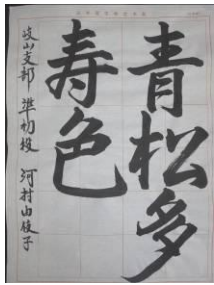 青松多
寿色
岐山支部 準初段 河村由枝子